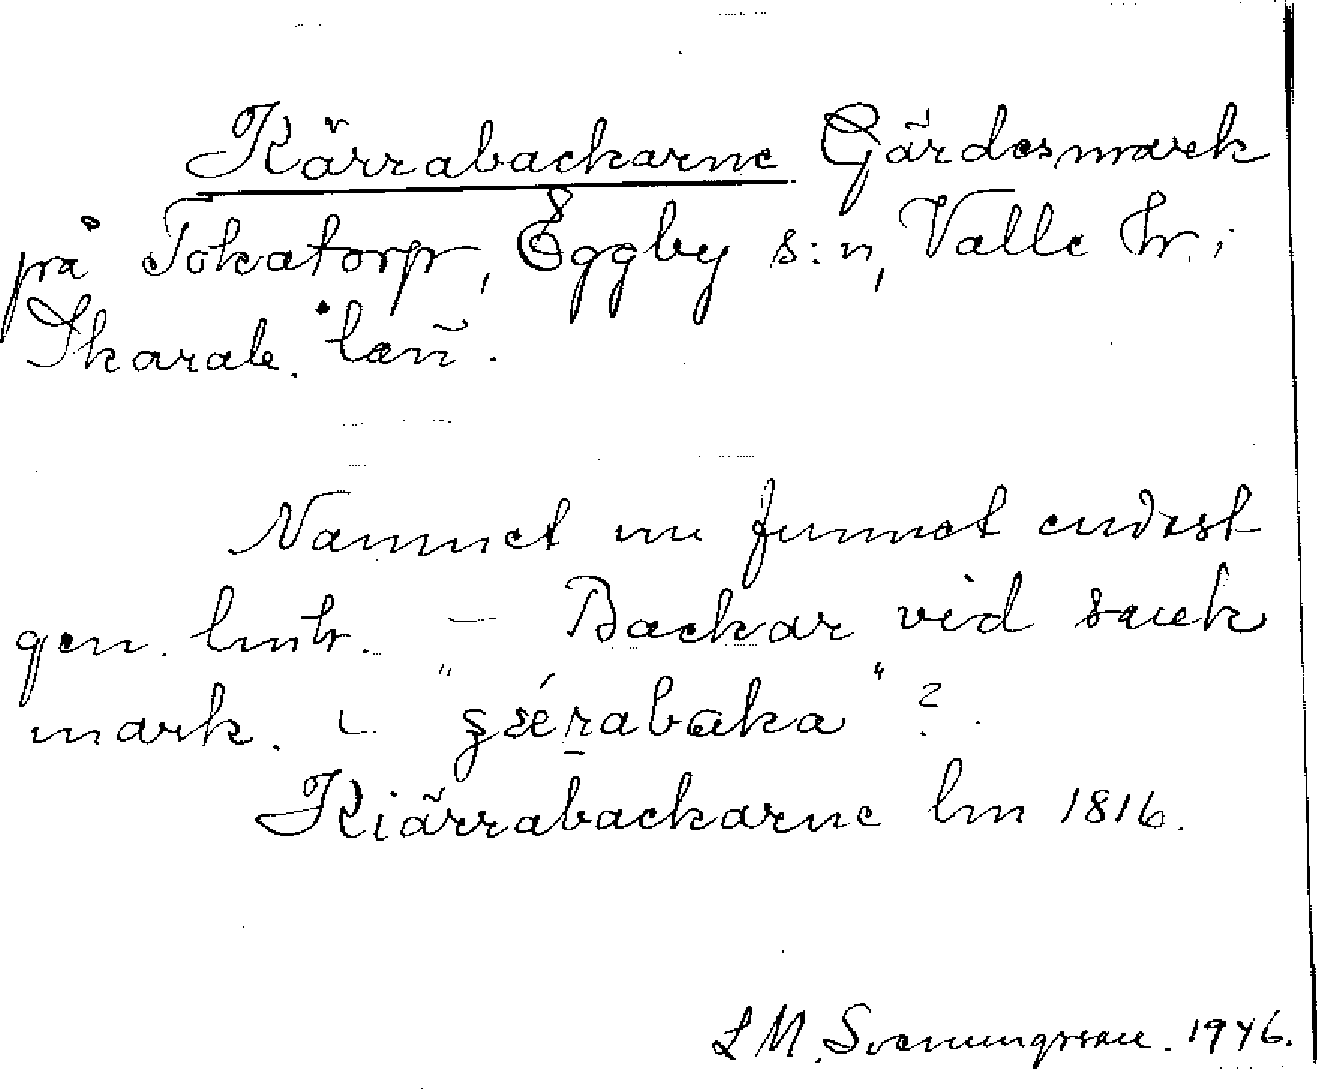 Kärrabackarne Gärdesmark
på Tokatorp, Eggby s:n, Valle hr i
Skarab. län.
Namnet nu funnet endast
gen. lmhr. — Backar vid sank
mark. "abaka"?
Kiärrabackarne lm 1816.
L M. Svenungsson. 1946.